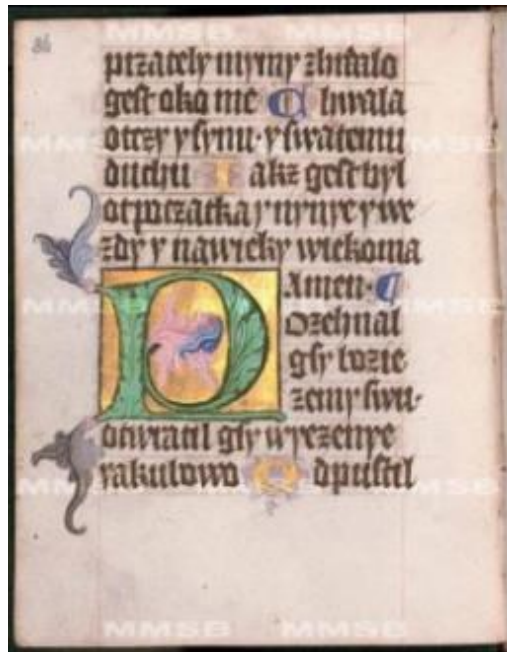 86
przately mymy zhrdalo
gest oko me Chwala
otczy y synu · y swatemu
duchu Iakz gest byl
ot poczatka y nynye y we
zdy y nawieky wiekoma
Amen ·
Pozehnal
gsy bozie
zemy swu ·
otwratil gsy wyezenye
yakubowo Odpustil
MMSB MMSB